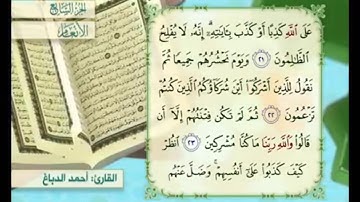 الجزء السابع
الأنعام
عَلَى ٱللَّهِ كَذِبًا أَوْ كَذَّبَ بِـَٔايَـٰتِهِۦٓ ۗ إِنَّهُۥ لَا يُفْلِحُ
ٱلظَّـٰلِمُونَ ٢١ وَيَوْمَ نَحْشُرُهُمْ جَمِيعًا ثُمَّ
نَقُولُ لِلَّذِينَ أَشْرَكُوٓا۟ أَيْنَ شُرَكَآؤُكُمُ ٱلَّذِينَ كُنتُمْ
تَزْعُمُونَ ٢٢ ثُمَّ لَمْ تَكُن فِتْنَتُهُمْ إِلَّآ أَن
قَالُوا۟ وَٱللَّهِ رَبِّنَا مَا كُنَّا مُشْرِكِينَ ٢٣ ٱنظُرْ
كَيْفَ كَذَبُوا۟ عَلَىٰٓ أَنفُسِهِمْ ۚ وَضَلَّ عَنْهُم
القارئ: أحمد الدباغ